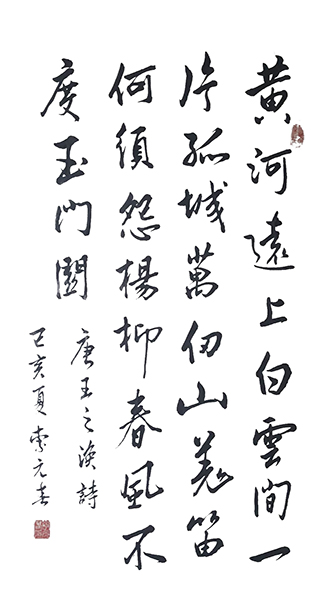 黄河遠上白雲間一
片孤城萬仞山羌笛
何須怨楊柳春風不
度玉門關
唐王之渙詩
己亥夏元春